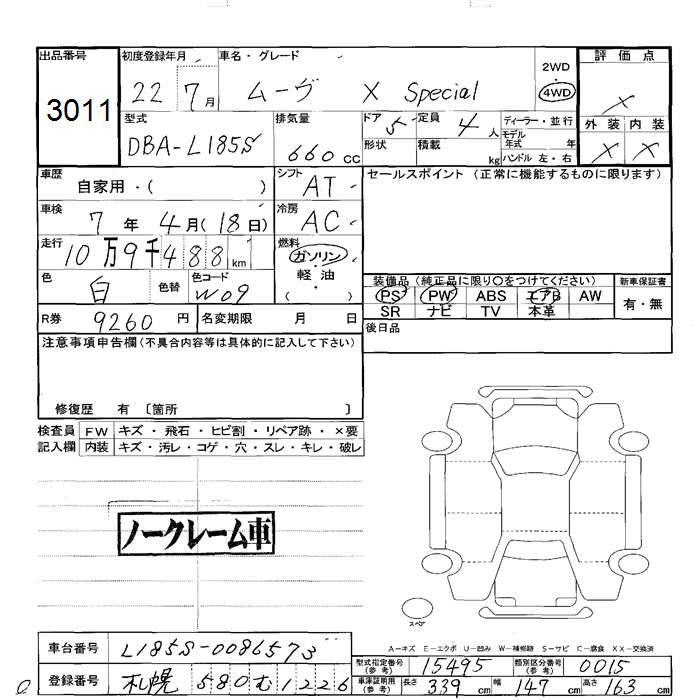 出品番号 初度登録年月 車名・グレード 評価点
3011 22 7月 ムーヴ X Special 2WD 4WD X
型式 排気量 ドア 5 定員 4人 ディーラー・並行 外装 内装
DBA-L185S 660cc 形状 積載 kg モデル年式 年 ハンドル 左・右 X X
車歴 自家用・( ) シフト AT セールスポイント (正常に機能するものに限ります)
車検 7年 4月(18日) 冷房 AC
走行 10万9千488km 燃料 ガソリン・軽油 ( )
色 白 色替 色コード W09 装備品 (純正品に限り○をつけてください) 新車保証書
PS PW ABS エアB AW 有・無
SR ナビ TV 本革
R券 9260円 名変期限 月 日 後日品
注意事項申告欄(不具合内容等は具体的に記入して下さい)
修復歴 有 〔箇所 〕
検査員 FW キズ・飛石・ヒビ割・リペア跡・×要
記入欄 内装 キズ・汚レ・コゲ・穴・スレ・キレ・破レ
ノークレーム車
スペア
A-キズ E-エクボ U-凹み W-補修跡 S-サビ C-腐食 XX-交換済
車台番号 L185S-0086573 型式指定番号(参考) 15495 類別区分番号(参考) 0015
登録番号 札幌 580 む 1226 車庫証明用(参考) 長さ 339cm 幅 147cm 高さ 163cm